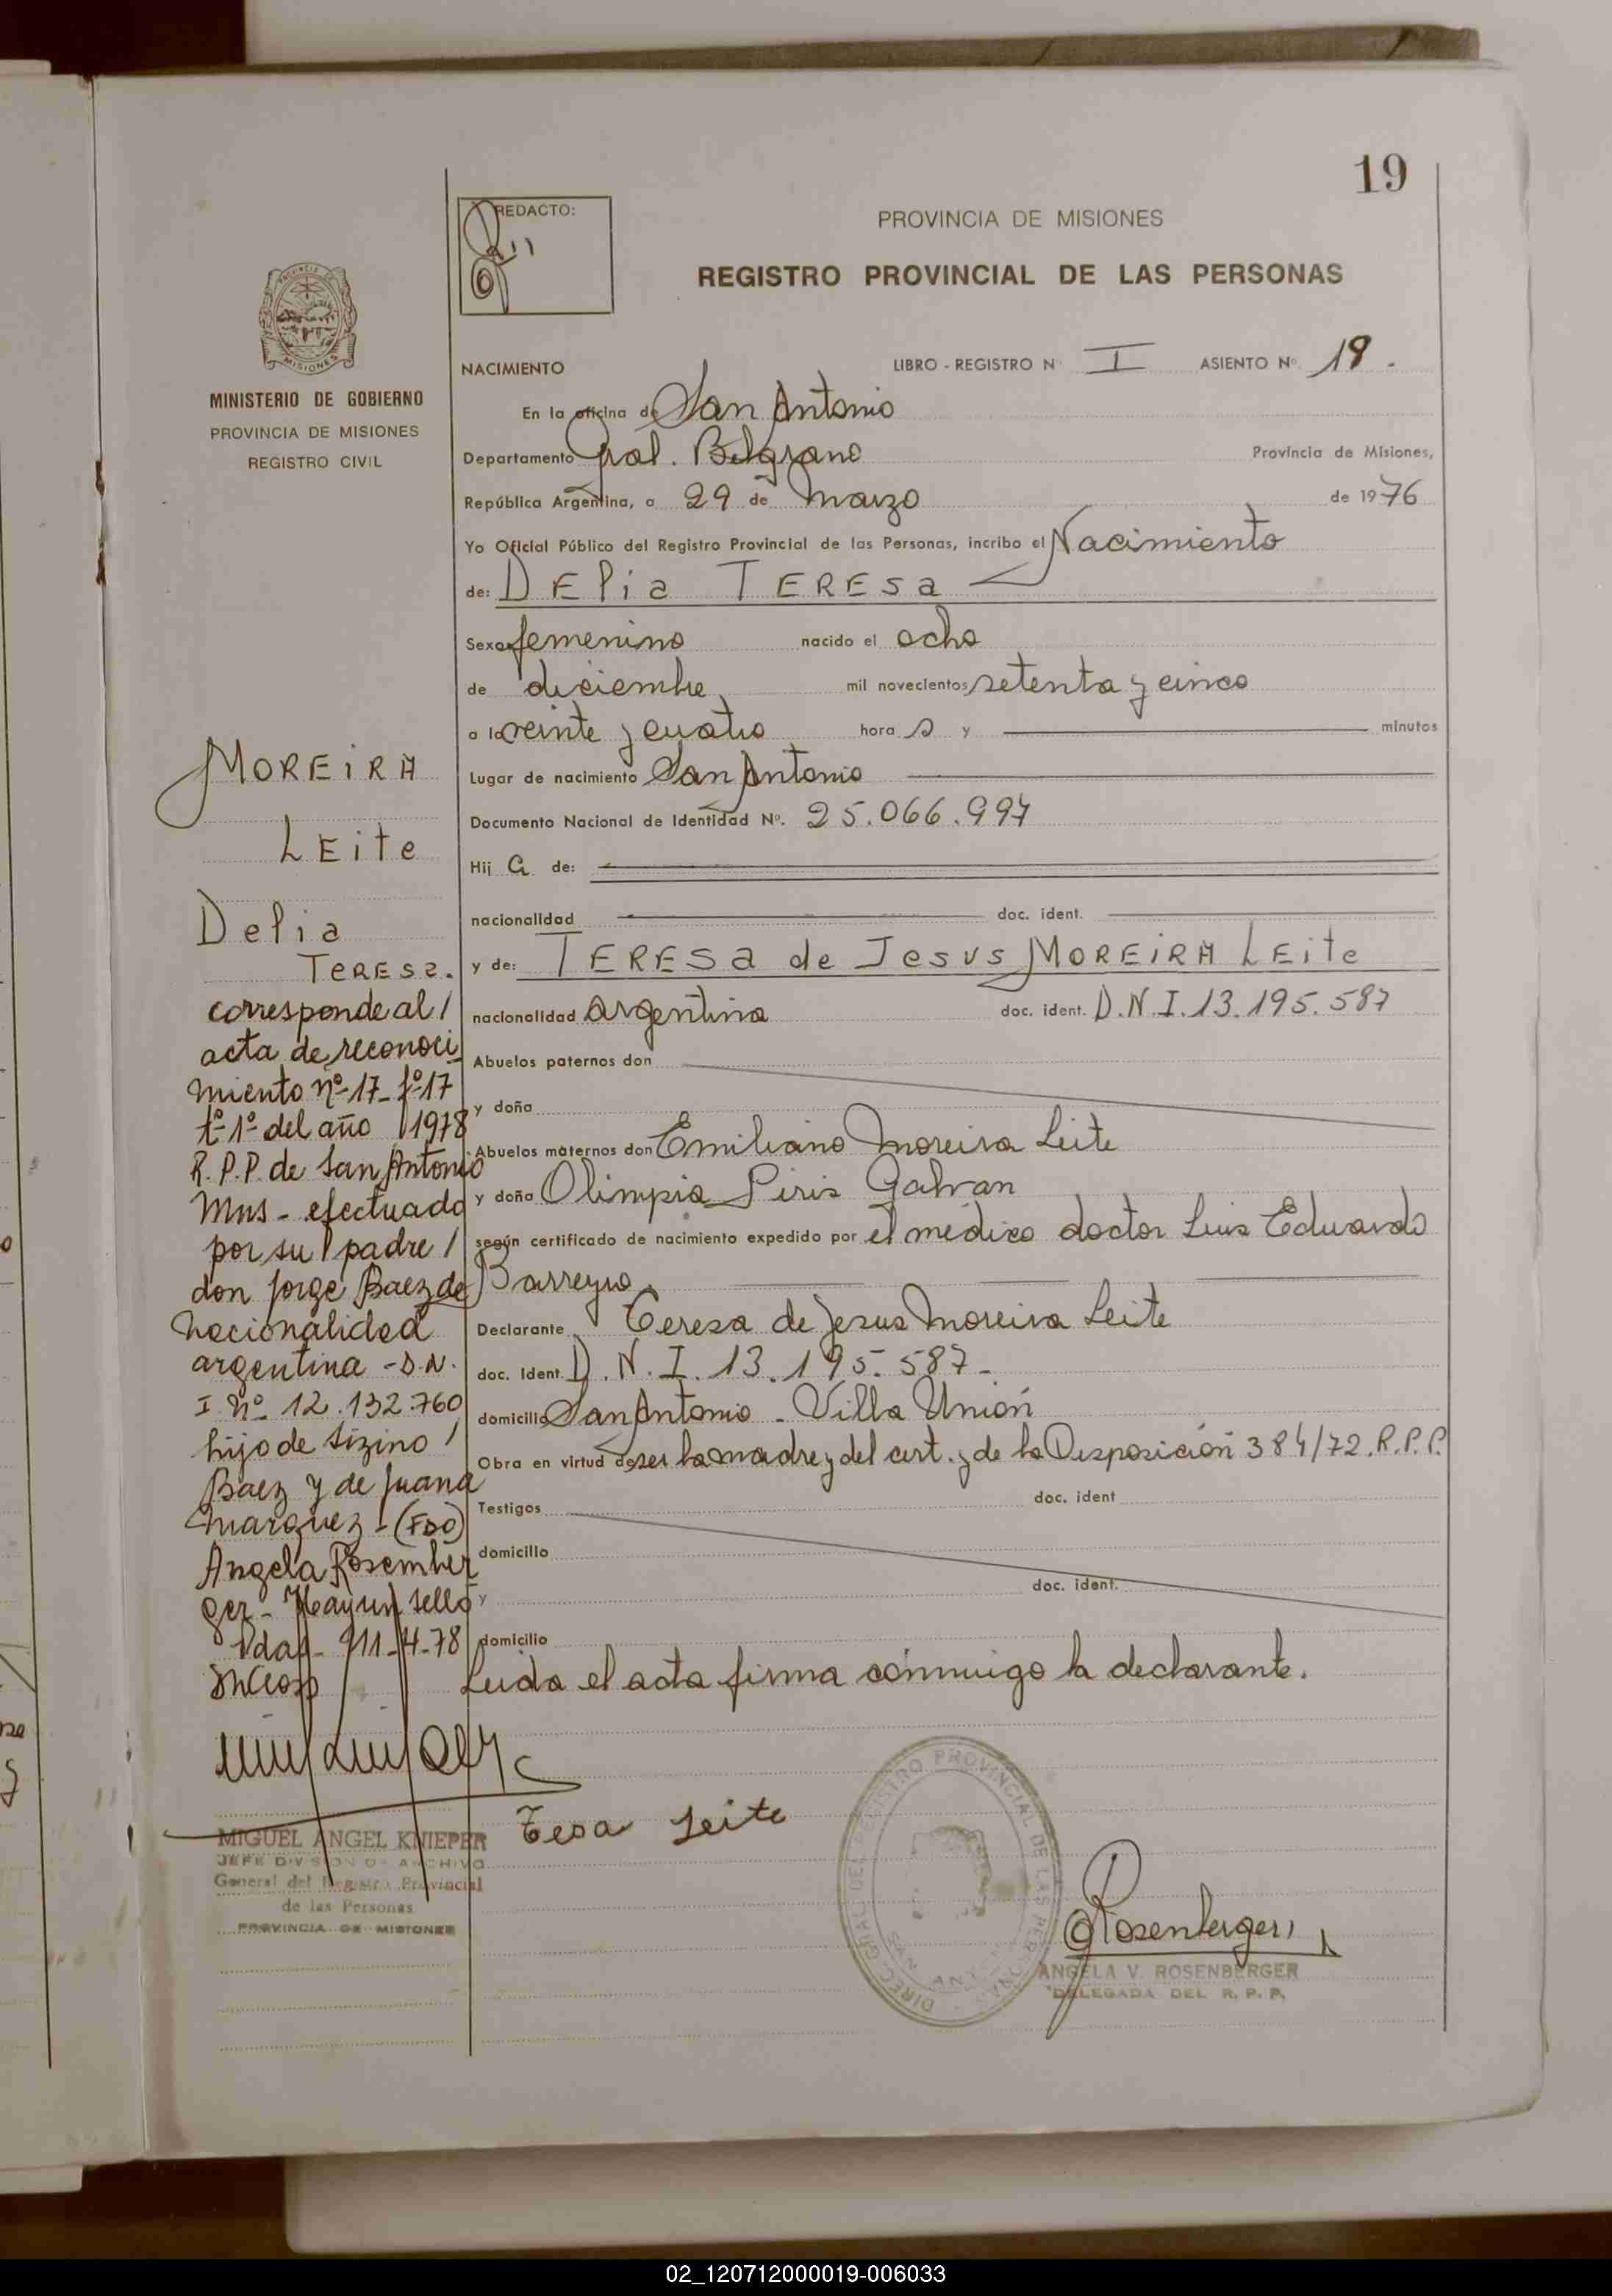 19
REDACTO:
PROVINCIA DE MISIONES
REGISTRO PROVINCIAL DE LAS PERSONAS
MISIONES
MINISTERIO DE GOBIERNO
PROVINCIA DE MISIONES
REGISTRO CIVIL
NACIMIENTO LIBRO - REGISTRO Nº I ASIENTO Nº. 19.
En la oficina de San Antonio
Departamento Gral. Belgrano Provincia de Misiones,
República Argentina, a 29 de Marzo de 1976
Yo Oficial Público del Registro Provincial de las Personas, incribo el Nacimiento
de: DElia TERESa
Sexo femenino nacido el ocho
de diciembre, mil novecientos setenta y cinco
a la veinte y cuatro hora s y minutos
Lugar de nacimiento San Antonio
Documento Nacional de Identidad Nº. 25.066.997
Hij a de:
nacionalidad doc. ident.
y de: TERESa de Jesus MOREiRA LEite
nacionalidad argentina doc. ident. D.N.I.13.195.587
Abuelos paternos don
y doña
Abuelos maternos don Emiliano Moreira Leite
y doña Olimpia Piris Galvan
según certificado de nacimiento expedido por el médico doctor Luis Eduardo
Barreyro.
Declarante Teresa de Jesus Moreira Leite
doc. Ident. D.N.I.13.195.587-
domicilio San Antonio - Villa Unión
Obra en virtud de ser la madre y del cert. y de la Disposición 384/72.R.P.P.
Testigos doc. ident
domicilio
y doc. ident.
domicilio
Leida el acta firma conmigo la declarante.
MOREiRA
LEite
Delia
TeRESa.
corresponde al /
acta de reconoci
miento nº-17-fº17
tº-1º del año 1978
R.P.P. de San Antonio
Mns - efectuado
por su padre /
don Jorge Baez de
nacionalidad
argentina - D.N.
I nº 12.132.760
hijo de Sizino /
Baez y de Juana
Marquez - (FDO)
Angela Rosember
ger - Hay un sello
Pdas - 11-4-78
MIGUEL ANGEL KNIEPER
JEFE DIVISION DE ARCHIVO
General del Registro Provincial
de las Personas
PROVINCIA DE MISIONES
Tesa Leite
DIREC. GRAL. DEL REGISTRO PROVINCIAL DE LAS PERSONAS
Rosenberger
ANGELA V. ROSENBERGER
DELEGADA DEL R. P. P.
02_120712000019-006033